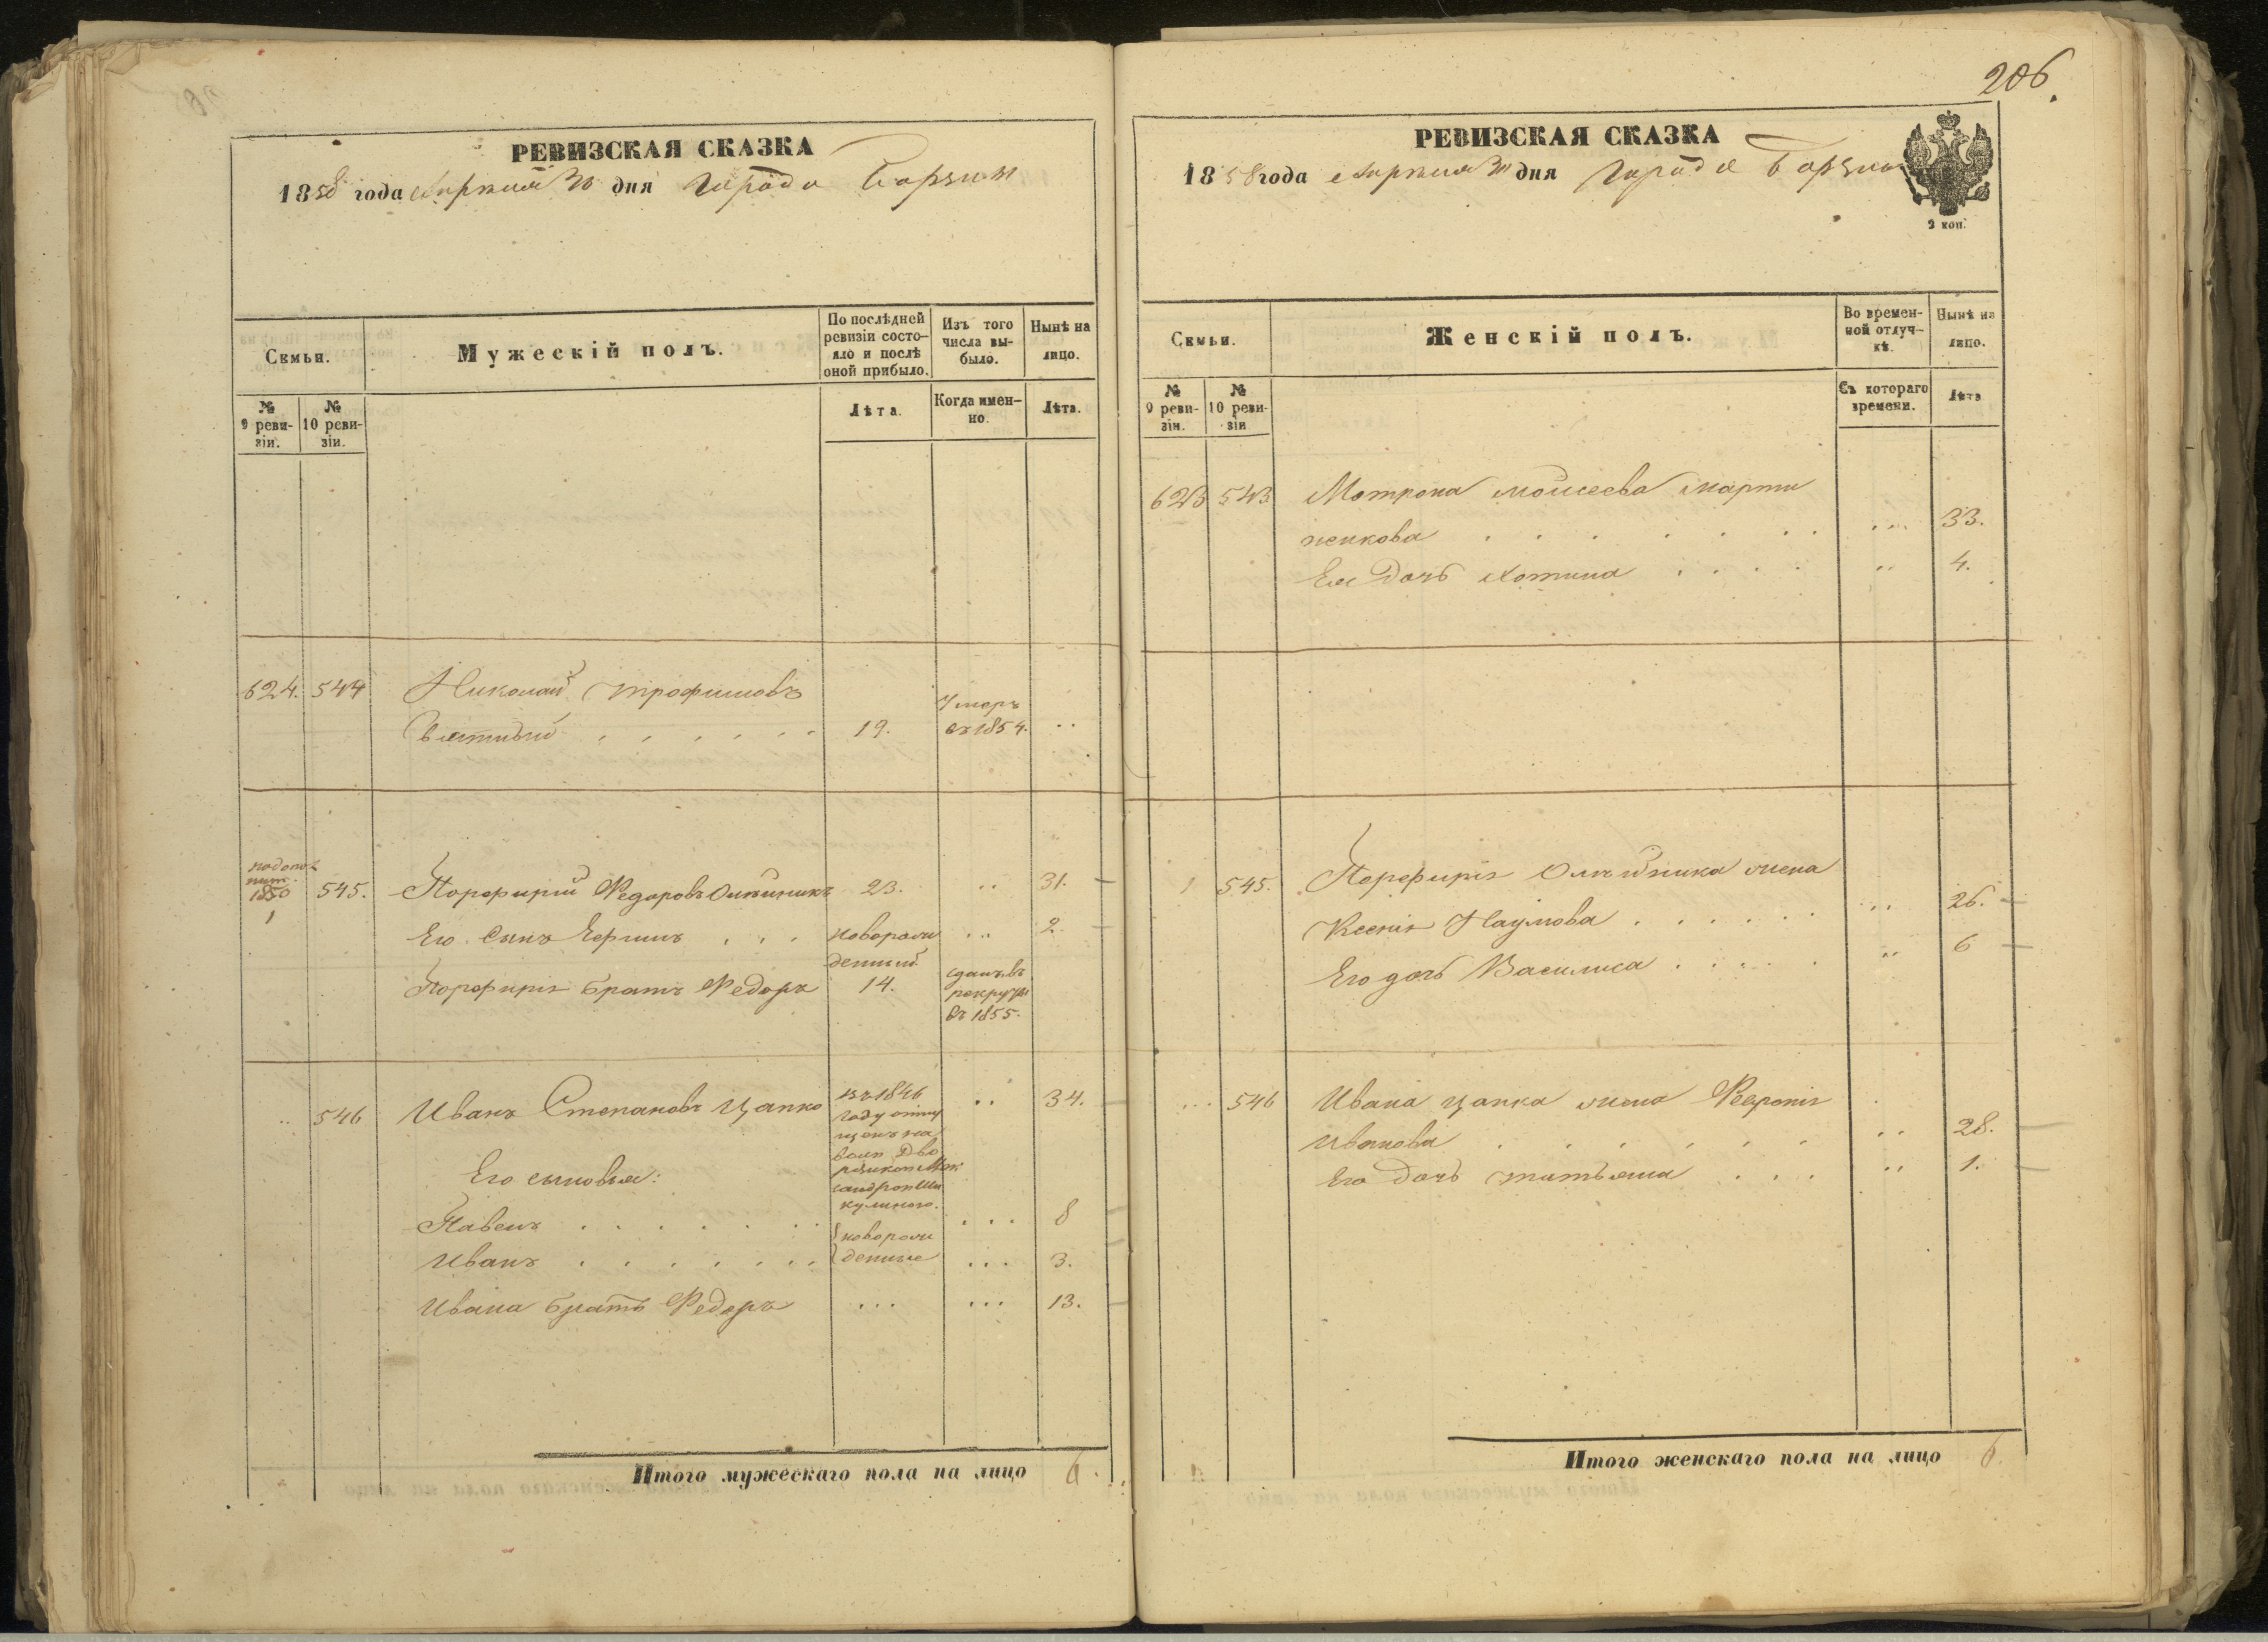 РЕВИЗСКАЯ СКАЗКА
1858 года Апреля 30 дня Города Борзны
Семьи.
Мужескій полъ.
По послѣдней ревизіи состо-
яло и послѣ
оной прибыло.
Изъ того
числа вы-
было.
Нынѣ на
лицо.
№
9 реви-
зіи.
№
10 реви-
зіи.
Лѣта.
Когда имен-
но.
Лѣта.
624. 544 Николай Трофимовъ
19. Умеръ
въ 1854. ..
1850
1
545. Порфирій Федоровъ Олѣйникъ 23. .. 31.
Его Сынъ новорож
денный ... 2.
Порфирія братъ Федоръ 14. сданъ въ
рекруты
въ 1855.
.. 546 Иванъ Степановъ Цапко въ 1846
году отпу
щенъ на
.. 34.
Его сыновья:
Павелъ . . . . . . . новорож ... 8
Иванъ . . . . . . . денные ... 3.
Ивана братъ Федоръ ... ... 13.
Итого мужескаго пола на лицо 6.
206.
РЕВИЗСКАЯ СКАЗКА
1858 года Апреля 30 дня Города Борзны
2 коп.
Семьи.
Женскій полъ.
Во времен-
ной отлуч-
кѣ.
Нынѣ на
лицо.
№
9 реви-
зіи.
№
10 реви-
зіи
Съ котораго
времени.
Лѣта
623 543 Мотрона Моисеева Марти
ненкова . . . . . . . ... 33.
Ея дочь . . . . .. 4.
1 545. Порфирія Олѣйника жена
Ксенія Наумова . . . . . . ... 26.
Его дочь Василиса . . . . . .. 6
... 546 Ивана Цапка жена Февронія
Иванова . . . . . . .. 28.
Его дочь Татьяна . . . .. 1.
Итого женскаго пола на лицо 6